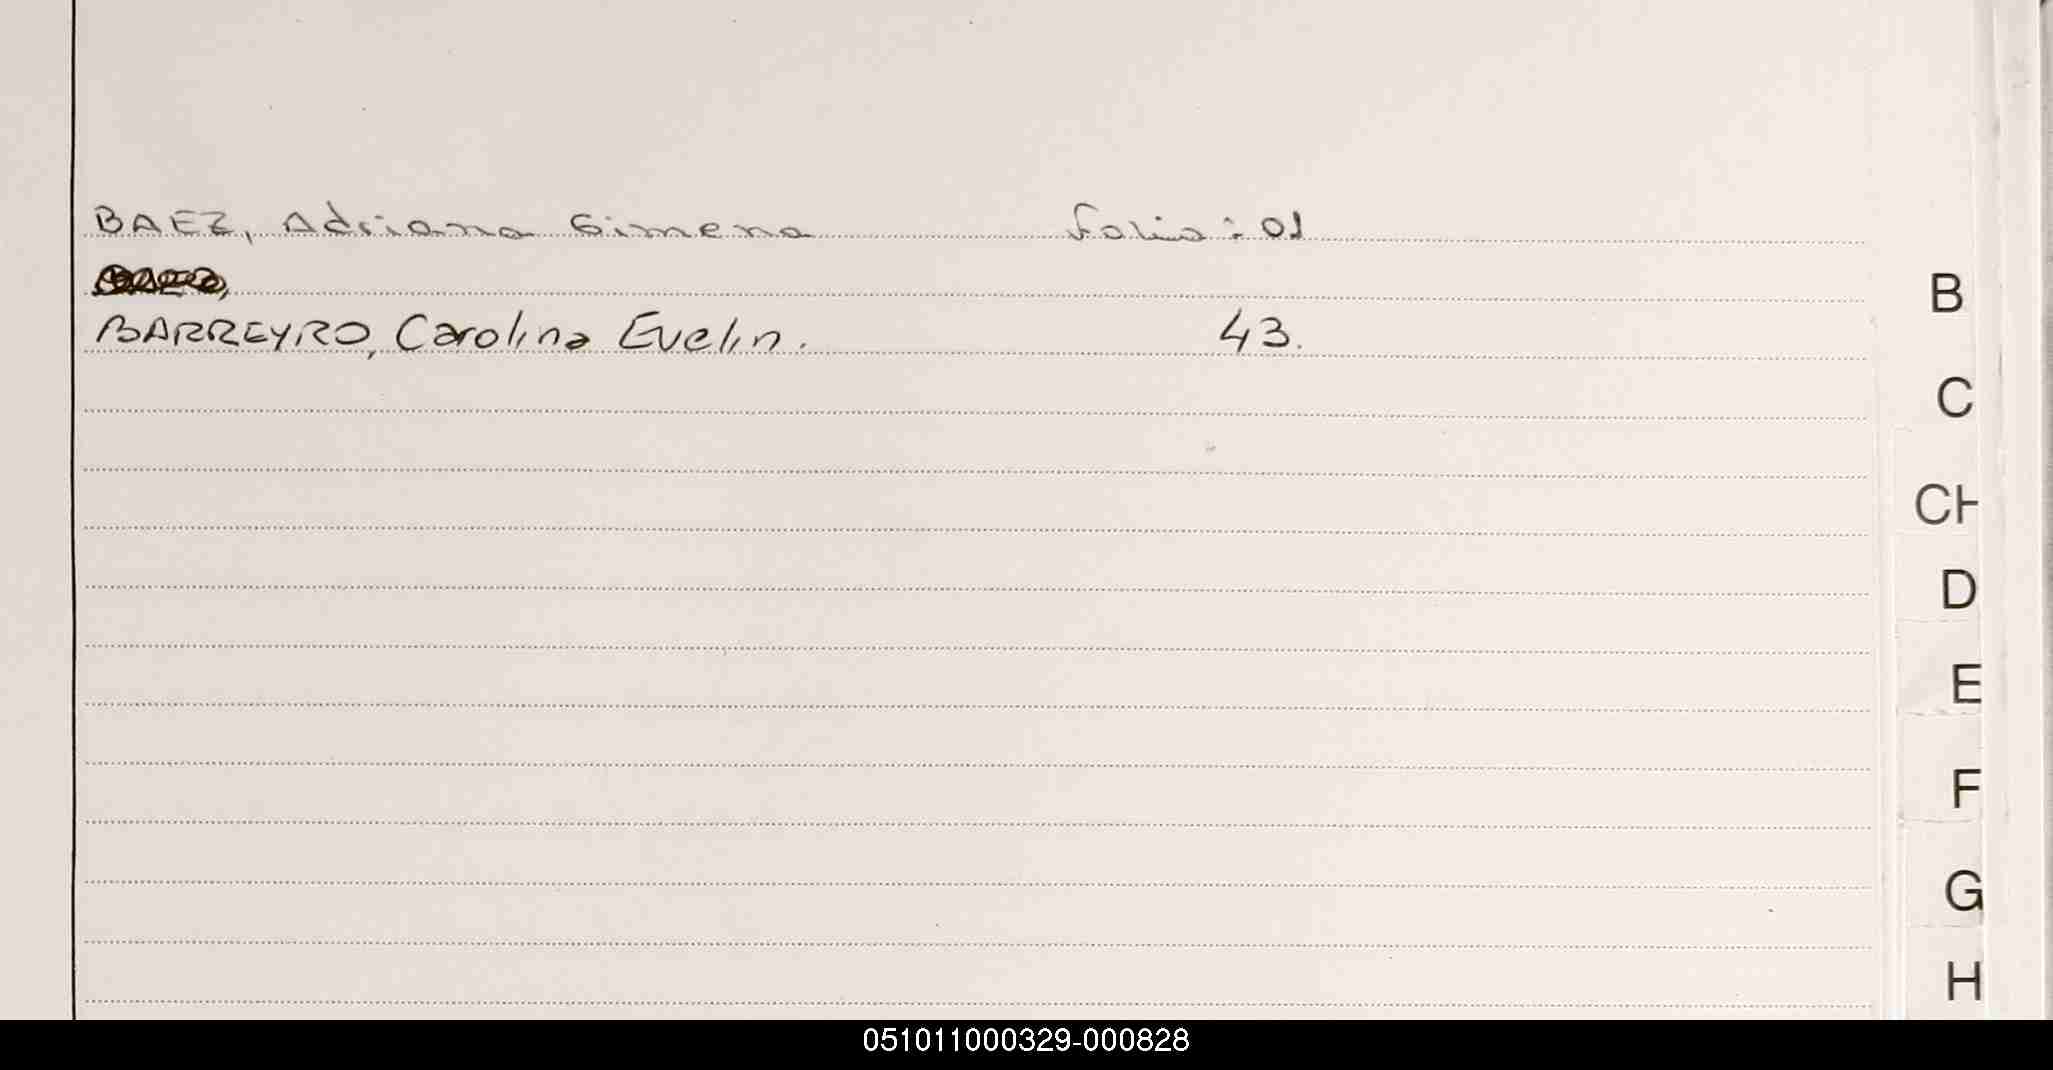 BAEZ, Adriana Gimena Folio: 01
BARREYRO, Carolina Evelin. 43.
B
C
CH
D
E
F
G
H
051011000329-000828